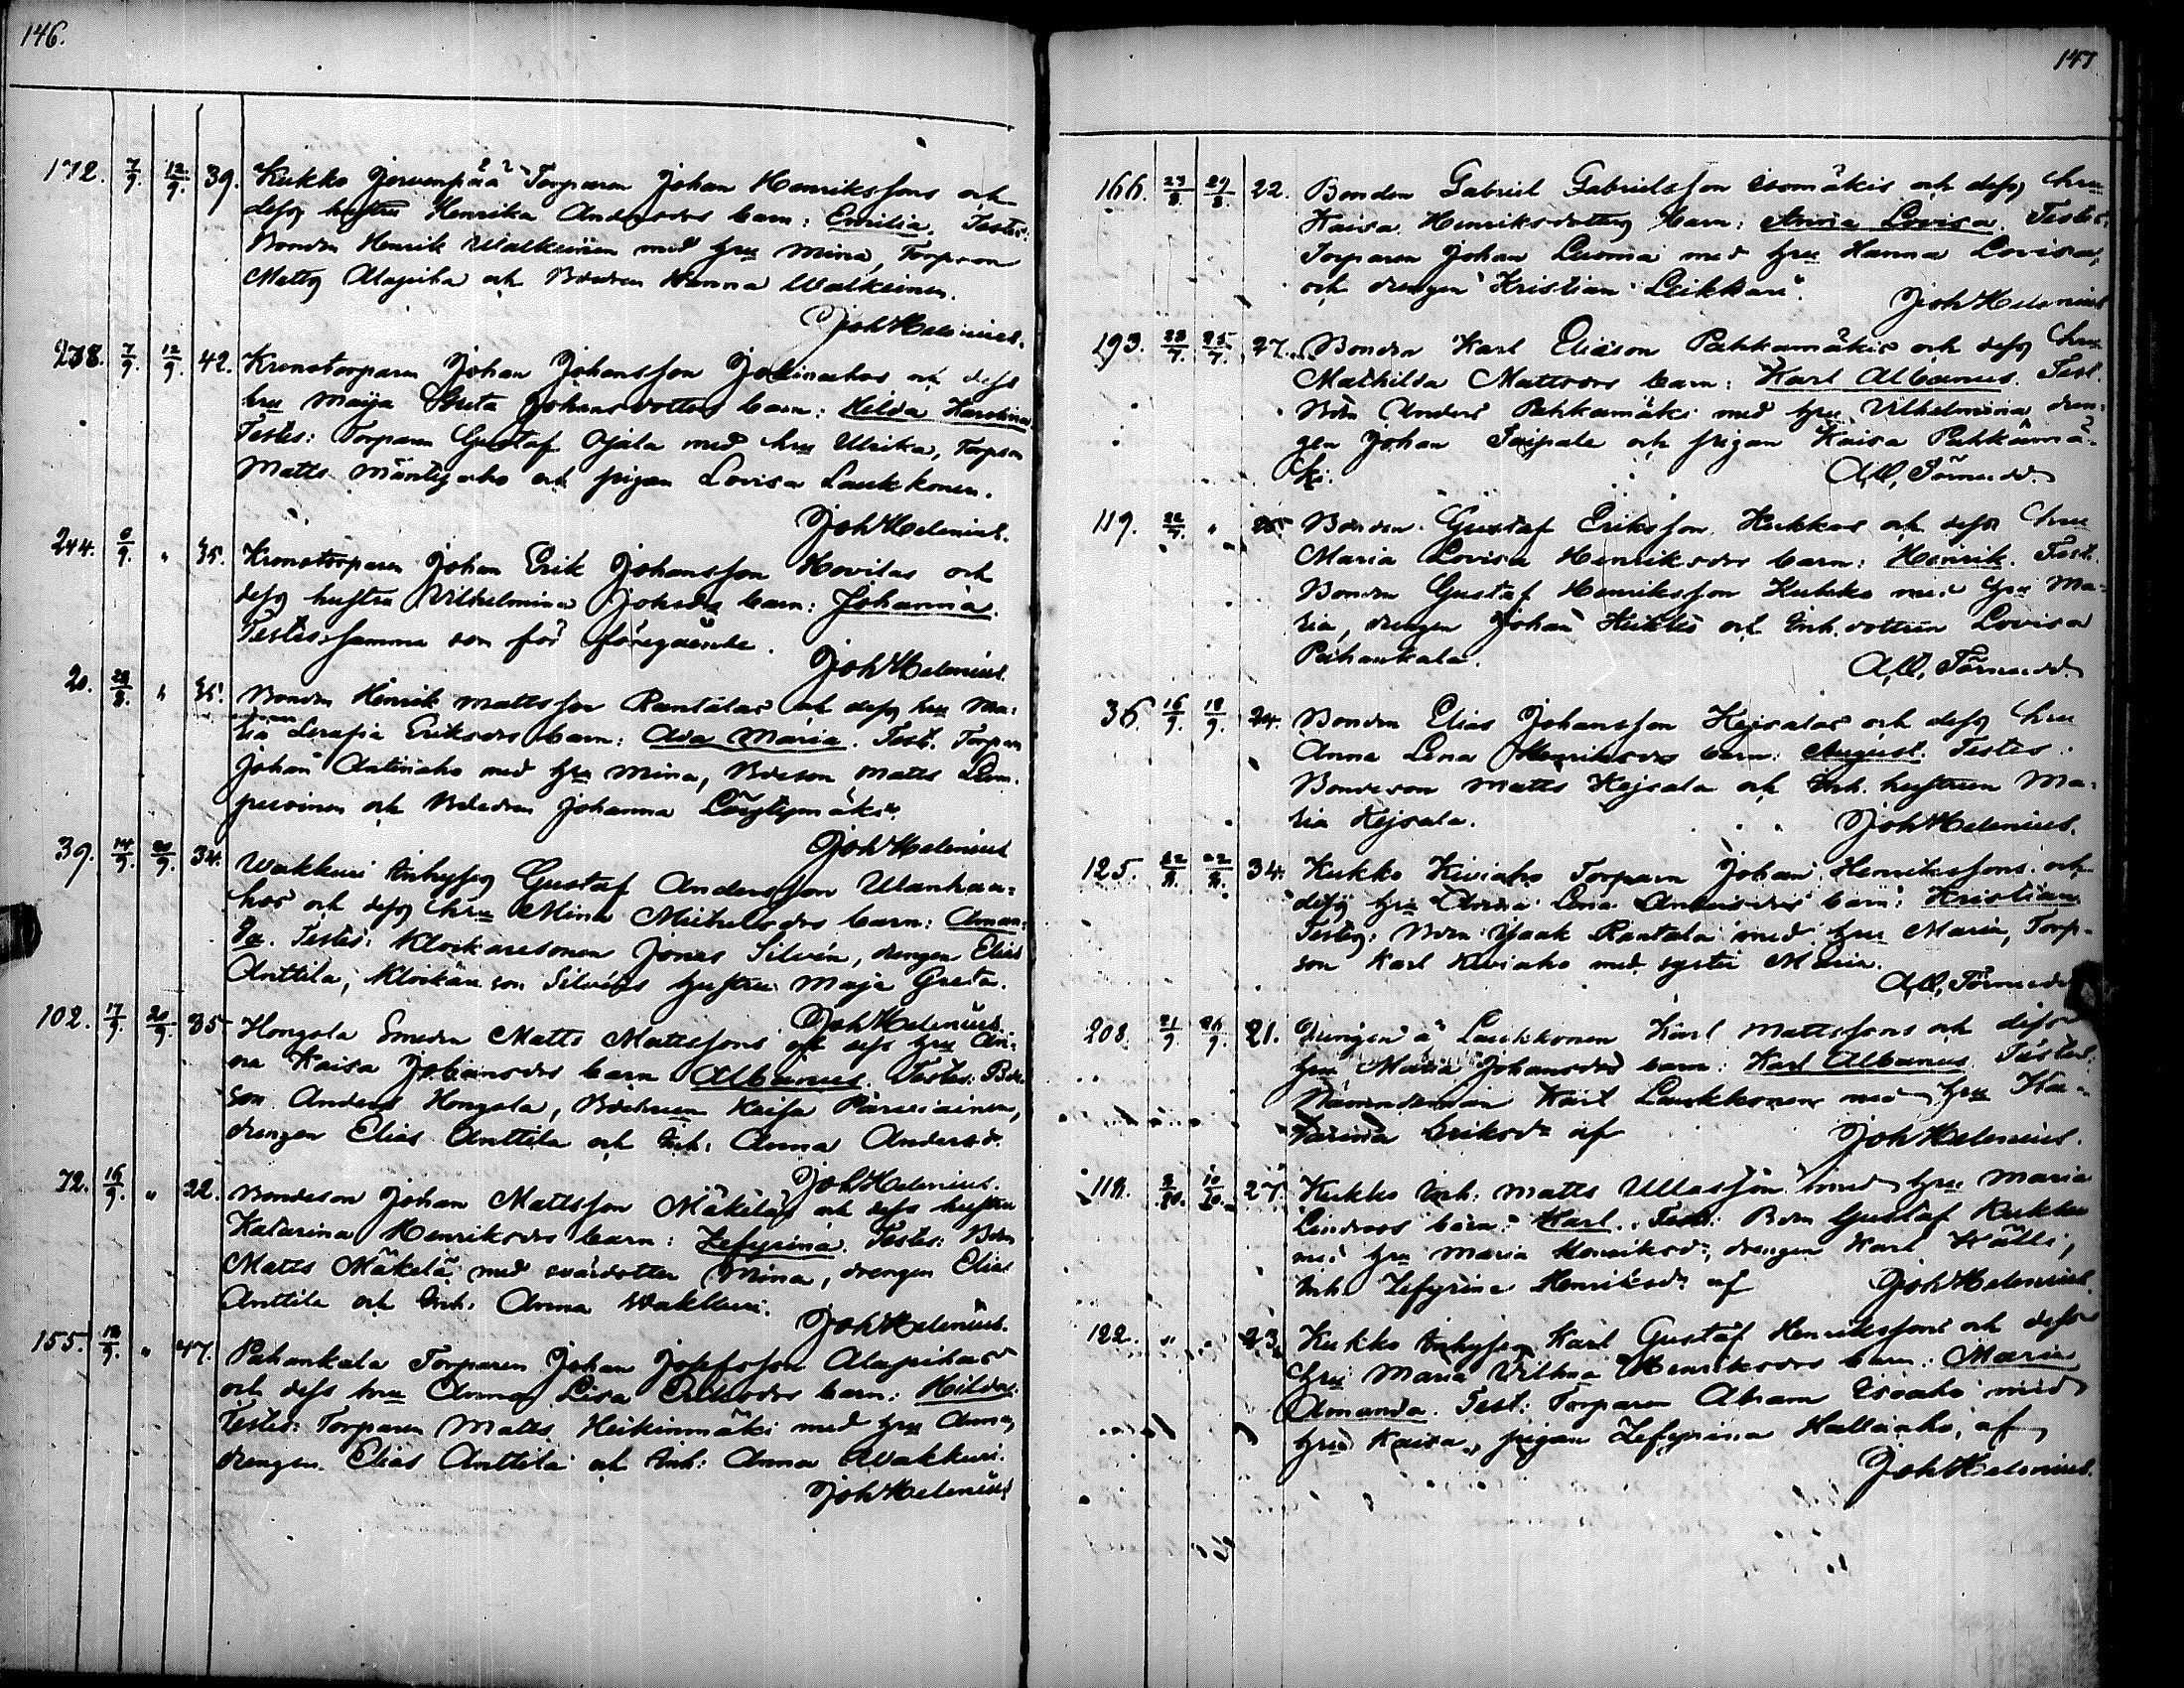 146.
172. 7/9. 12/9. 39. Kukko Jervenpää Torparen Johan Henrikssons och
dess hustru Henrika Andersdrs barn: Emilia. Testes:
Bonden Henrik Walkeinen med hru Mina, Torpson
Matts Alapiha och Bonden Hanna Walkeinen.
Joh Helenius.
238. 7/9. 12/9. 42. Kronotorparen Johan Johansson och dess
hru Maija Greta Johansdotters barn: Hilda Karolina
Testes: Torparen Gustaf Ojala med hru Ulrika, Torpson
Matts Mäntyaho och pigan Lovisa Laukkonen.
Joh Helenius.
244. 8/9. " 35. Kronotorparen Johan Erik Johansson Hovilas och
dess hustru Vilhelmina Johsdrs barn: Johanna.
Testes: samma som för föregående.
Joh Helenius.
20. 29/8. " 35. Bonden Henrik Mattsson Rantalas och dess hru Ma-
ria Serafia Eriksdrs barn: Ada Maria. Test. Torparen
Johan Antinaho med hru Mina, Bdeson Matts
och Johanna
Joh Helenius
39. 14/9. 20/9. 34. Wakkuri Inhyses Gustaf Andersson Wanhaa-
hos och dess hru Mina Michelsdrs barn: Aman-
da. Testes: Klockaresonen Jonas Silvén, drengen Elias
Anttila, Klockare son Silvéns hustru Maja Greta.
Joh Helenius.
102. 17/9. 20/9. 35 Hongola Smeden Matts Mattssons och dess hru An-
na Kaisa Johansdrs barn Albanus. Testes: Bde-
son Anders Hongola, Kaisa
drengen Elias Anttila och Inh: Anna Andersd.
Joh Helenius.
72. 16/9. " 22. Bondeson Johan Mattsson Mäkeläs och dess hustru
Katarina Henriksdrs barn: Zefyrina. Testes: Bdn
Matts Mäkelä med svärdotter Mina, drengen Elias
Anttila och Inh. Anna Wakkuri.
Joh Helenius.
155. 18/9. " 47. Pahankala Torparen Johan Josefsson Alapihas
och dess hru Anna Lisa Eriksdrs barn: Hilda.
Testes: Torparen Matts Heikinmäki med hru Anna,
drengen Elias Anttila och Inh: Anna Wakkuri.
Joh Helenius
147
166. 23/8. 24/8. 22. Bonden Gabriel Gabrielsson Isomäkis och dess hru
Kaisa Henriksdotters barn: Anna Lovisa. Testes:
Torparen Johan Luoma med hru Hanna Lovisa,
och drengen Kristian Leikkari.
Joh Helenius
193. 23/7. 25/7. 27. Bonden Karl Eliason Pahkamäkis och dess hru
Mathilda Mattsdrs barn: Karl Albanus. Test.
Bdn Anders Pahkamäki med hru Vilhelmina dren-
gen Johan Taipale och pigan Kaisa Pahkamä-
ki.
A. W. Törnudd.
119. 22/7. " 25 Bonden Gustaf Eriksson Kukkos och dess hru
Maria Lovisa Henriksdrs barn: Henrik. Test.
Bonden Gustaf Henriksson Kukko med hru Ma-
ria, drengen Johan Kukko och Inh. dottren Lovisa
Pahankala.
A. W. Törnudd.
36. 16/9. 18/9. 24. Bonden Elias Johansson Keisalas och dess hru
Anna Lena Henriksdrs barn: August. Testes:
Bondeson Matts Kejsala och Inh. hustrun Ma-
ria Kejsala.
Joh Helenius.
125. 22/8. 22/8. 34. Kukko Kiviaho Torparen Johan Henrikssons och
dess hru Anna Lena Andersdrs barn: Kristian
Testes: Bdn Isaak Rantala med hru Maria, Torp-
son Karl Kiviaho med syster Maria.
A. W. Törnudd
208. 21/9. 26/9. 21. Drengen å Laukkonen Karl Mattssons och dess
hru Maria Johansdrs barn: Karl Albanus Testes:
Nämndeman Karl Laukkonen med hru Ka-
tarina Eriksdr af
Joh Helenius.
118. 3/10. 10/10. 27. Kukko Inh: Matts Ullasson med hru Maria
Lindroos barn: Karl. Test: Bdn Gustaf Kukko
med hru Maria Henriksdr, drengen Karl Hälli,
Inh. Zefyrina Henriksdr af
Joh Helenius.
122. " " 23. Kukko Inhyses Karl Gustaf Henrikssons och dess
hru Maria Vilhna Henriksdrs barn: Maria
Amanda. Test: Torparen Abram Isoaho med
hru Kaisa, pigan Zefyrina Hallaaho, af
Joh Helenius.